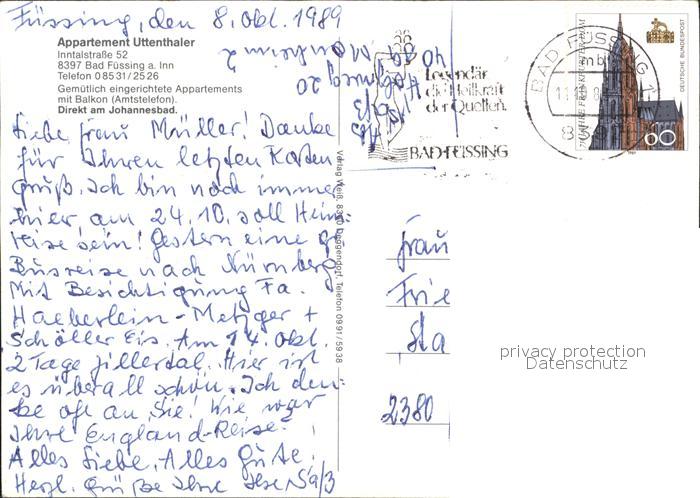 Füssing, den 8. Okt. 1989
Appartement Uttenthaler
Inntalstraße 52
8397 Bad Füssing a. Inn
Telefon 0 85 31 / 25 26
Gemütlich eingerichtete Appartements
mit Balkon (Amtstelefon).
Direkt am Johannesbad.
Liebe Frau Müller! Danke
für Ihren letzten Karten
gruß. Ich bin noch immer
hier, am 24.10. soll Heim-
reise sein! Gestern eine gr.
Busreise nach Nürnberg
Mit Besichtigung Fa.
Haeberlein-Metzger +
Schöller Eis. Am 14. Okt.
2 Tage Zillertal. Hier ist
es überall schön. Ich den-
ke oft an Sie! Wie war
Ihre England-Reise?
Alles Liebe, Alles Gute!
Herzl. Grüße Ihre
Verlag Weiß, 8360 Deggendorf, Telefon 0991/5938
Legendär
die Heilkraft
der Quellen.
BAD FÜSSING
BAD FÜSSING 1
DEUTSCHE BUNDESPOST
FRANKFURTER DOM
60
Frau
Frie
Sta
2380
privacy protection
Datenschutz